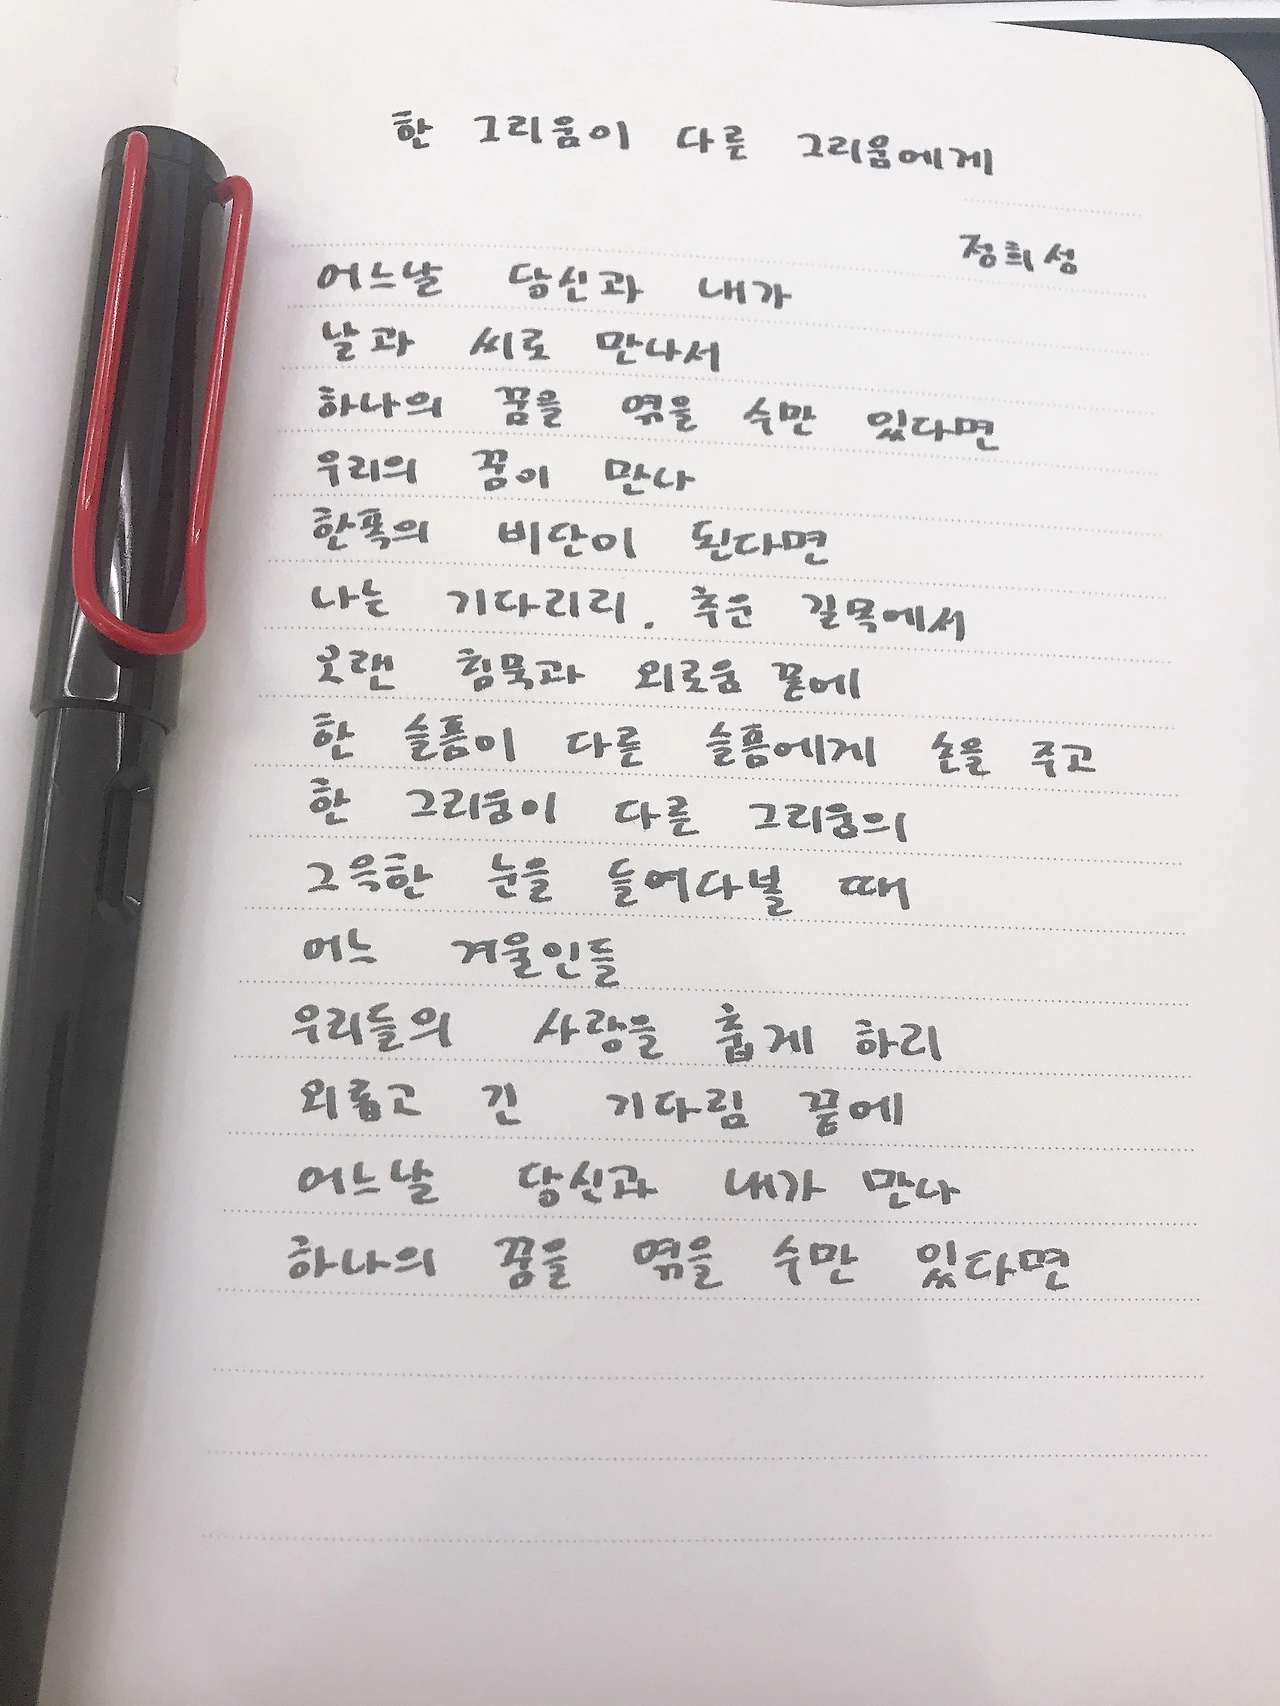 한 그리움이 다른 그리움에게
정희성
어느날 당신과 내가
날과 씨로 만나서
하나의 꿈을 엮을 수만 있다면
우리의 꿈이 만나
한폭의 비단이 된다면
나는 기다리리. 추운 길목에서
오랜 침묵과 외로움 끝에
한 슬픔이 다른 슬픔에게 손을 주고
한 그리움이 다른 그리움의
그윽한 눈을 들여다볼 때
어느 겨울인들
우리들의 사랑을 춥게 하리
외롭고 긴 기다림 끝에
어느날 당신과 내가 만나
하나의 꿈을 엮을 수만 있다면